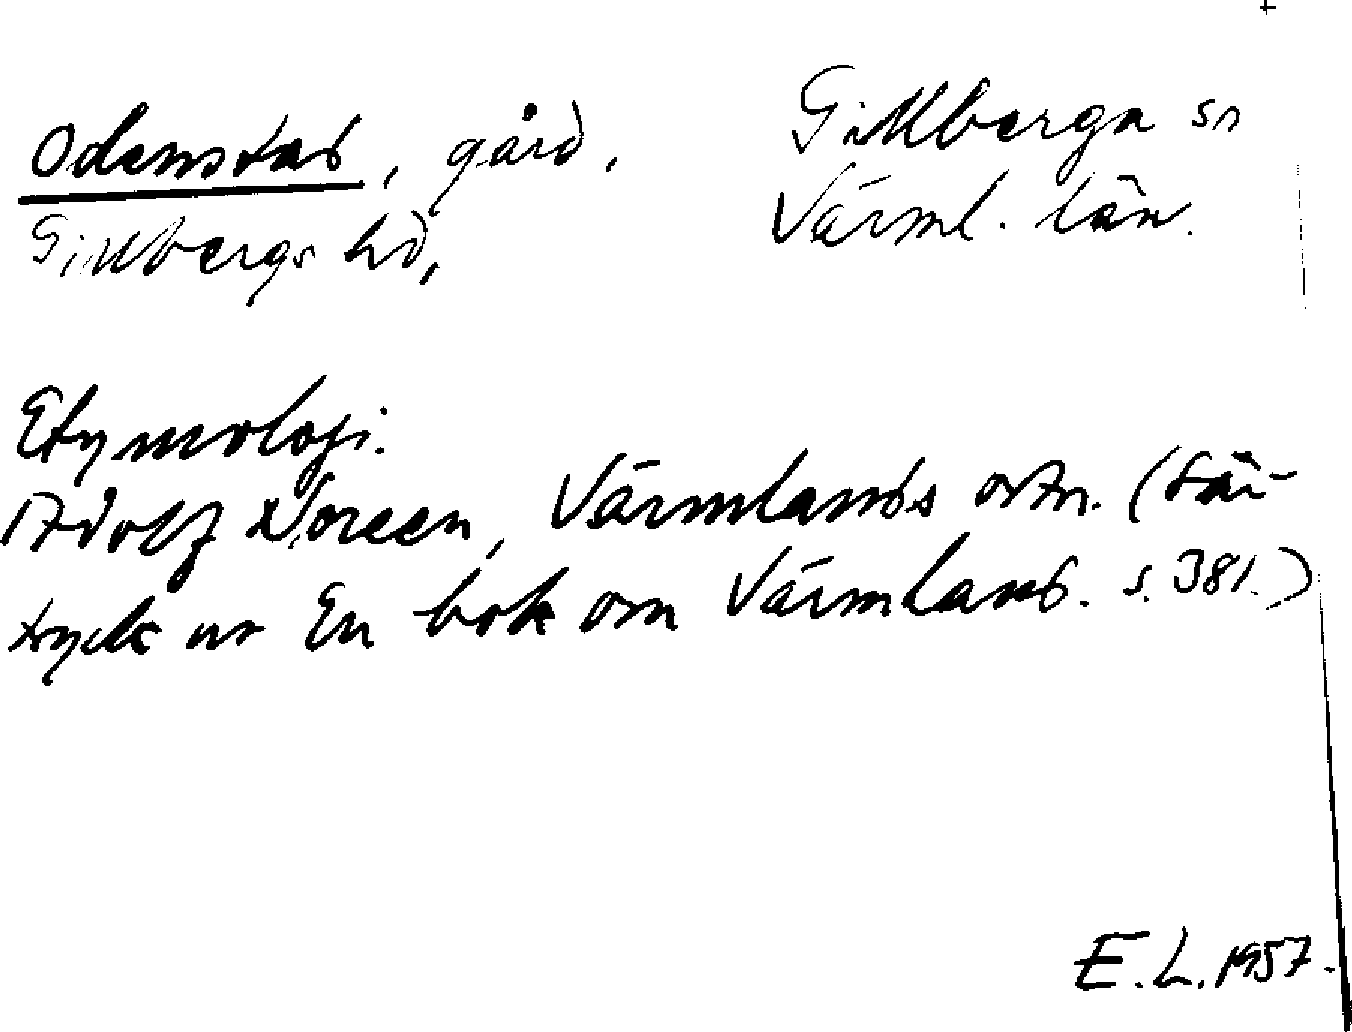 Odenstad, gård,
Gillbergs hd,
Gillberga sn
Värml. län.
Etymologi.
Adolf Noreen, Värmlands ortn. (Sär-
tryck ur En bok om Värmland. s. 381.)
E.L. 1957.